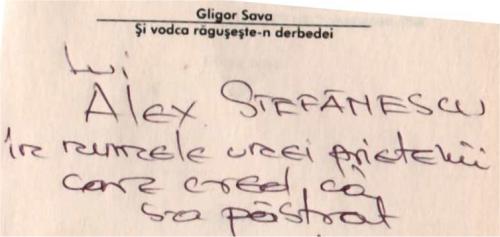 Gligor Sava
Și vodca răgușește-n derbedei
Lui
Alex. Ștefănescu
în numele unei prietenii
care cred că
s-a păstrat